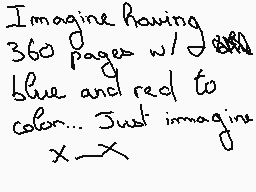 Imagine having
360 pages w/
blue and red to
color... Just immagine
x_x